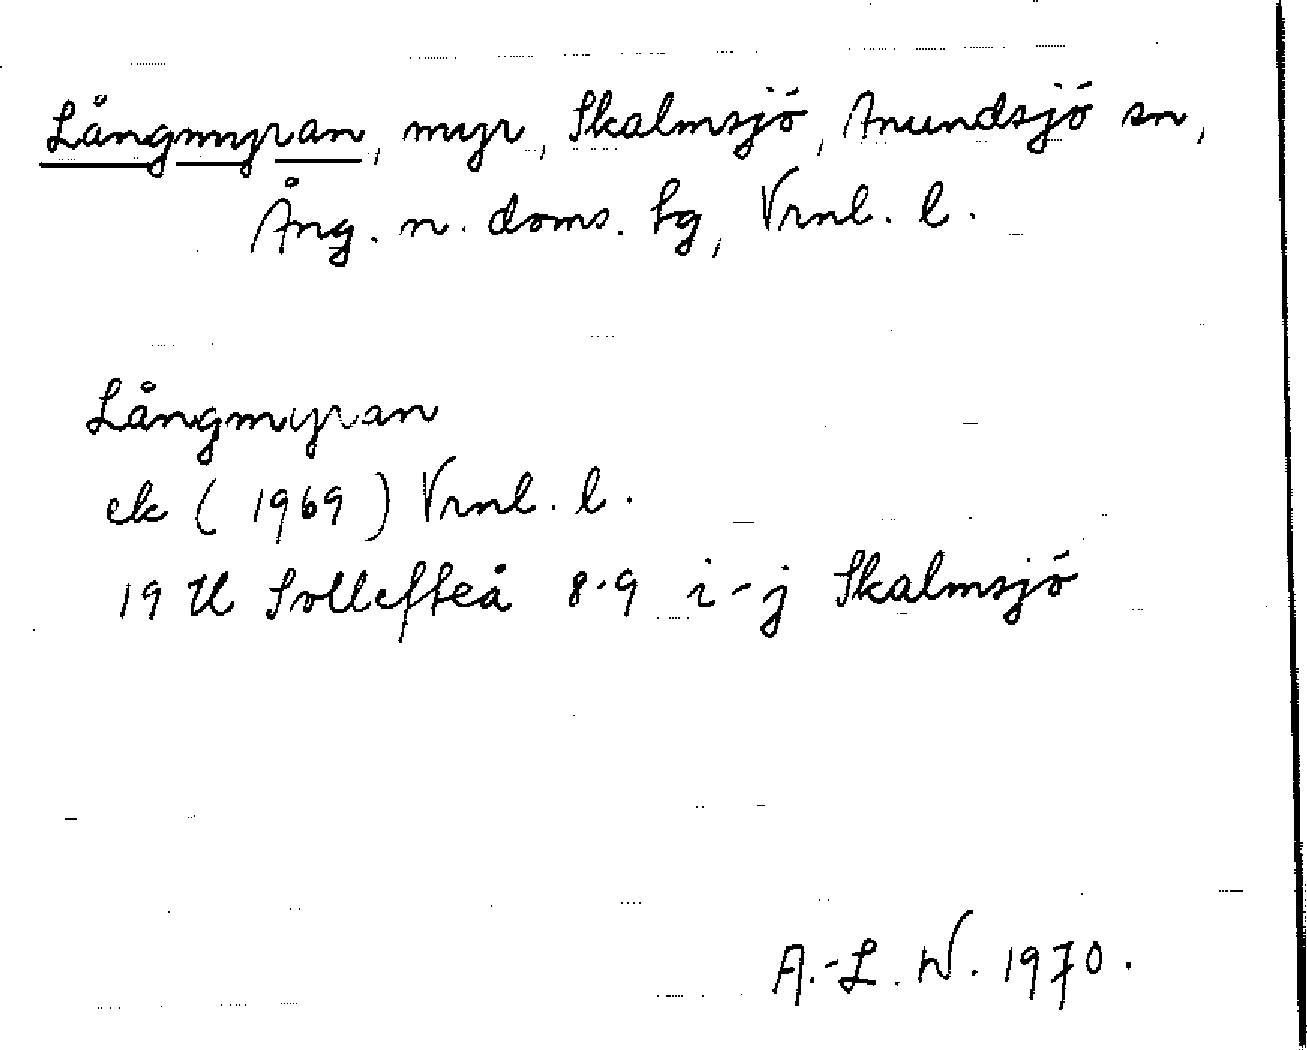 Långmyran, myr, Skalmsjö, Anundsjö sn,
Ång. n. doms. sg, Vrnl. l.
Långmyran
ek (1969) Vrnl. l.
19 H Sollefteå 8-9 i-j Skalmsjö
A.-L. W. 1970.